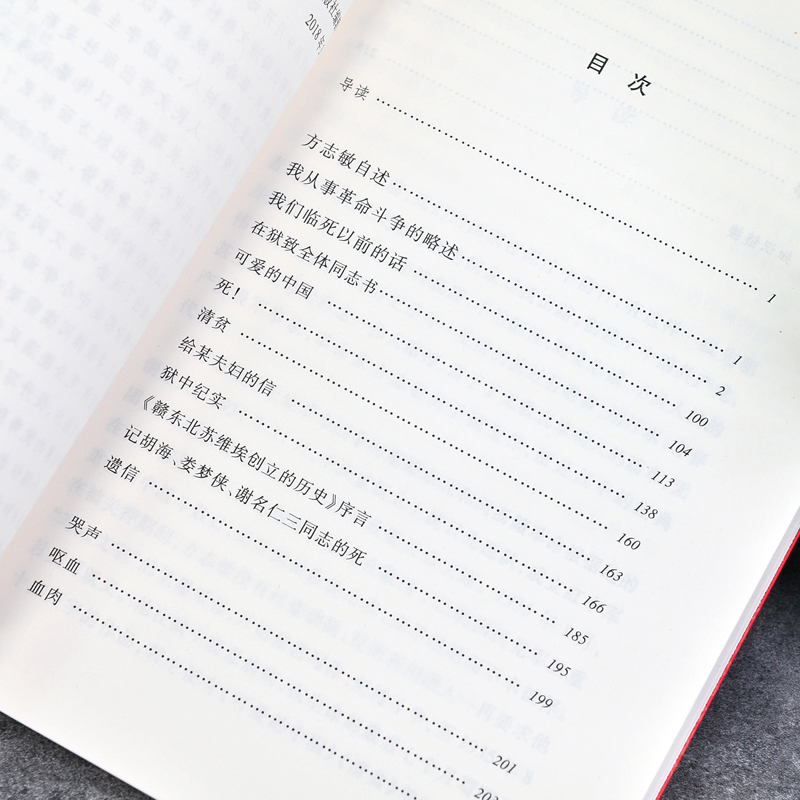 2018年
目次
导读 1
方志敏自述 1
我从事革命斗争的略述 2
我们临死以前的话 100
在狱致全体同志书 104
可爱的中国 113
死! 138
清贫 160
给某夫妇的信 163
狱中纪实 166
《赣东北苏维埃创立的历史》序言 185
记胡海、娄梦侠、谢名仁三同志的死 195
遗信 199
哭声 201
呕血
血肉